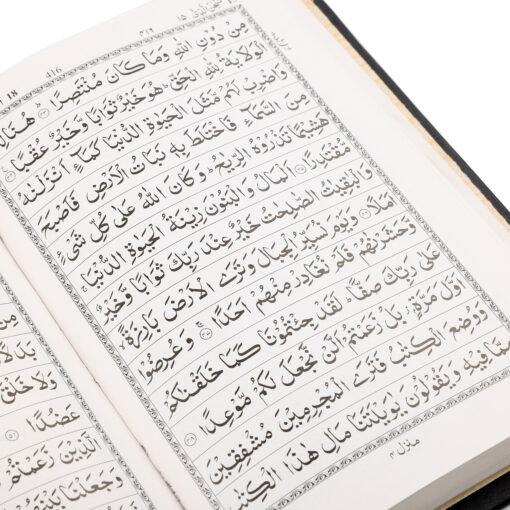 18 416
مِنْ دُوْنِ اللّٰهِ وَمَا كَانَ مُنْتَصِرًا ﴿۴۳﴾ هُنَالِ
الْوَلَايَةُ لِلّٰهِ الْحَقِّ ؕ هُوَ خَيْرٌ ثَوَابًا وَّخَيْرٌ عُقْبًا ﴿۴۴﴾
وَاضْرِبْ لَهُمْ مَّثَلَ الْحَيٰوةِ الدُّنْيَا كَمَآءٍ اَنْزَلْنٰهُ
مِنَ السَّمَآءِ فَاخْتَلَطَ بِهٖ نَبَاتُ الْاَرْضِ فَاَصْبَحَ
هَشِيْمًا تَذْرُوْهُ الرِّيٰحُ ؕ وَكَانَ اللّٰهُ عَلٰى كُلِّ شَيْءٍ
مُّقْتَدِرًا ﴿۴۵﴾ اَلْمَالُ وَالْبَنُوْنَ زِيْنَةُ الْحَيٰوةِ الدُّنْيَا ۚ
وَالْبٰقِيٰتُ الصّٰلِحٰتُ خَيْرٌ عِنْدَ رَبِّكَ ثَوَابًا وَّخَيْرٌ
اَمَلًا ﴿۴۶﴾ وَيَوْمَ نُسَيِّرُ الْجِبَالَ وَتَرَى الْاَرْضَ بَارِزَةً ۙ
وَّحَشَرْنٰهُمْ فَلَمْ نُغَادِرْ مِنْهُمْ اَحَدًا ﴿۴۷﴾ وَعُرِضُوْا
عَلٰى رَبِّكَ صَفًّا ؕ لَقَدْ جِئْتُمُوْنَا كَمَا خَلَقْنٰكُمْ
اَوَّلَ مَرَّةٍۢ ؗ بَلْ زَعَمْتُمْ اَلَّنْ نَّجْعَلَ لَكُمْ مَّوْعِدًا ﴿۴۸﴾
وَوُضِعَ الْكِتٰبُ فَتَرَى الْمُجْرِمِيْنَ مُشْفِقِيْنَ
مِمَّا فِيْهِ وَيَقُوْلُوْنَ يٰوَيْلَتَنَا مَالِ هٰذَا الْكِتٰبِ
منزل ۴
بَدَلًا
وَلَا خَلْقَ
عَضُدًا ﴿۵۱﴾
الَّذِيْنَ زَعَمْتُمْ
وَجَعَلْنَا